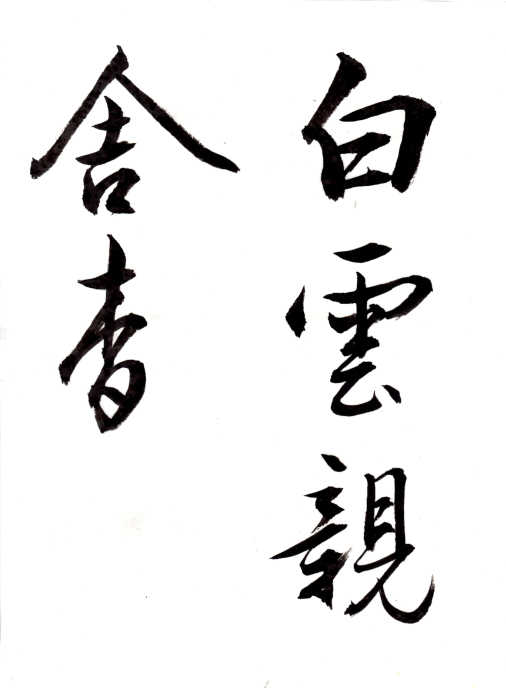 白雲親
舎青